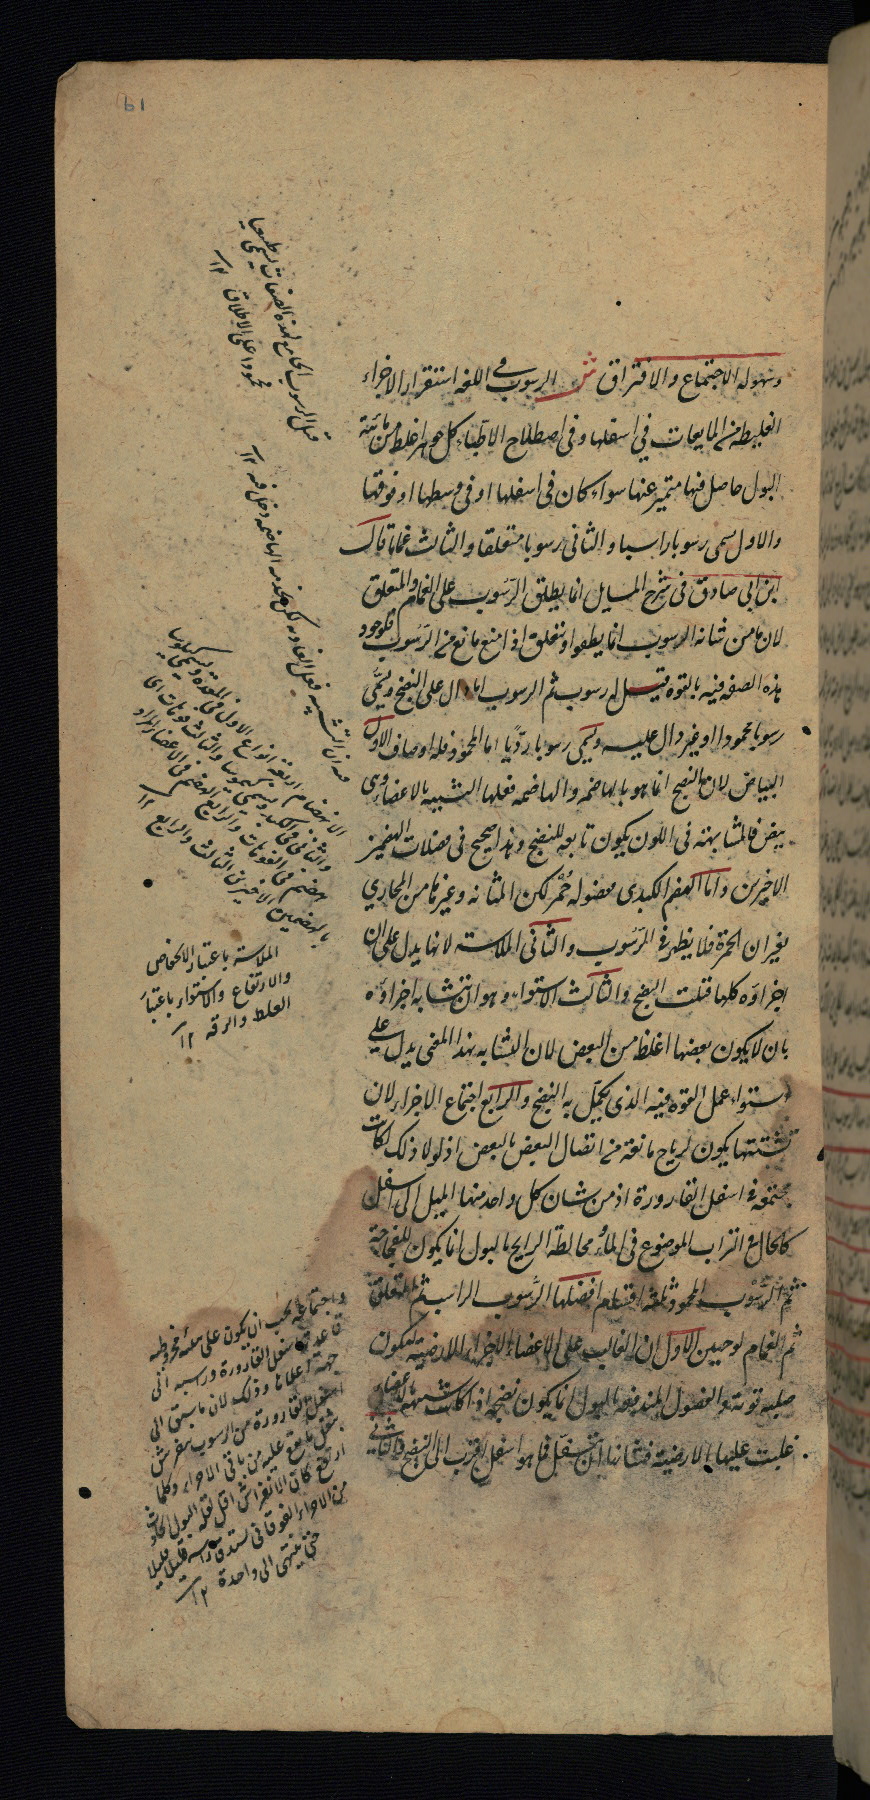 وسهوله الاجتماع والافتراق ش الرسوب في اللغه استقرار الاجزاء
الغليظه من المايعات في اسفلها وفي اصطلاح الاطباء كل جوهر اغلظ من مائية
البول حاصل فيها متميز عنها سواء كان في اسفلها او في وسطها او فوقها
والاول يسمى رسوبا راسبا والثاني رسوبا متعلقا والثالث غماما قال
ابن ابي صادق في شرح المسايل انما يطلق الرسوب على الغمام والمتعلق
لان ما من شانه الرسوب انما يطفو او يتعلق اذا منع مانع من الرسوب فلوجود
هذه الصفه فيه بالقوه قيل له رسوب ثم الرسوب اما دال على النضج ويسمى
رسوبا محمودا او غير دال عليه ويسمى رسوبا رديا اما المحمود فله اوصاف الاول
البياض لان النضج انما هو بالهاضمه والهاضمه فعلها التشبيه بالاعضاء وهى
بيض فالمشابهته في اللون يكون تابعه للنضج وهذا صحيح في فضلات الهضمين
الاخيرين واما الهضم الكبدى ففضوله حُمْر لكن المثانه وغيرها من المجاري
يغيران الحمرة فلا يظهر في الرسوب والثاني الملاسته لانها يدل على ان
اجزاؤه كلها قبلت النضج والثالث الاستواء وهو ان يتشابه اجزاؤه
بان لا يكون بعضها اغلظ من البعض لان التشابه بهذا المعنى يدل على
استواء عمل القوه فيه الذى يكمل به النضج والرابع اجتماع الاجزاء لان
تشتتها يكون لرياح مانعة من اتصال البعض بالبعض اذ لولا ذلك لكانت
مجتمعه في اسفل القارورة اذ من شان كل واحد منها الميل الى اسفل
كالحال في التراب الموضوع في الماء ومخالطة الرايح بالبول انما يكون للفجاجة
ثم الرسوب المحمود ثلثه اقسام افضلها الرسوب الراسب ثم المتعلق
ثم الغمام لوجهين الاول ان الغالب على الاعضاء الاجزاء الارضية ليكون
صلبه قوية والفضول المندفعه بالبول انما يكون نضجه اذا كانت شبيهة بالاعضاء
غلبت عليها الارضية فشانها ان تتسفل فما هو اسفل اقرب الى النضج والثاني
قيل الرسوب الجامع لهذه الصفات يسمى طبيعيا
محمودا على الاطلاق ١٢
الانهضام اربعة انواع الاول في المعدة ويسمى كيلوسا
والثاني في الكبد ويسمى كيموسا والثالث
هضم في العروق والرابع الهضم في الاعضاء والمراد
بالهضمين الاخيرين الثالث والرابع ١٢
الملاسة باعتبار الانخفاض
والارتفاع والاستواء باعتبار
الغلظ والرقه ١٢
واجتماعه يجب ان يكون على هيئة مخروطه
قاعدته اسفل القارورة وراسه الى
جهة اعلاها وذلك لان ما سبق الى
اسفل القارورة من الرسوب يتفرش
بثقل ما يقع عليه من باقى الاجزاء وكلما
ارتفع كان الانفراش اقل لقلة
من الاجزاء الفوقانى قليلا قليلا
حتى ينتهى الى واحدة ١٢